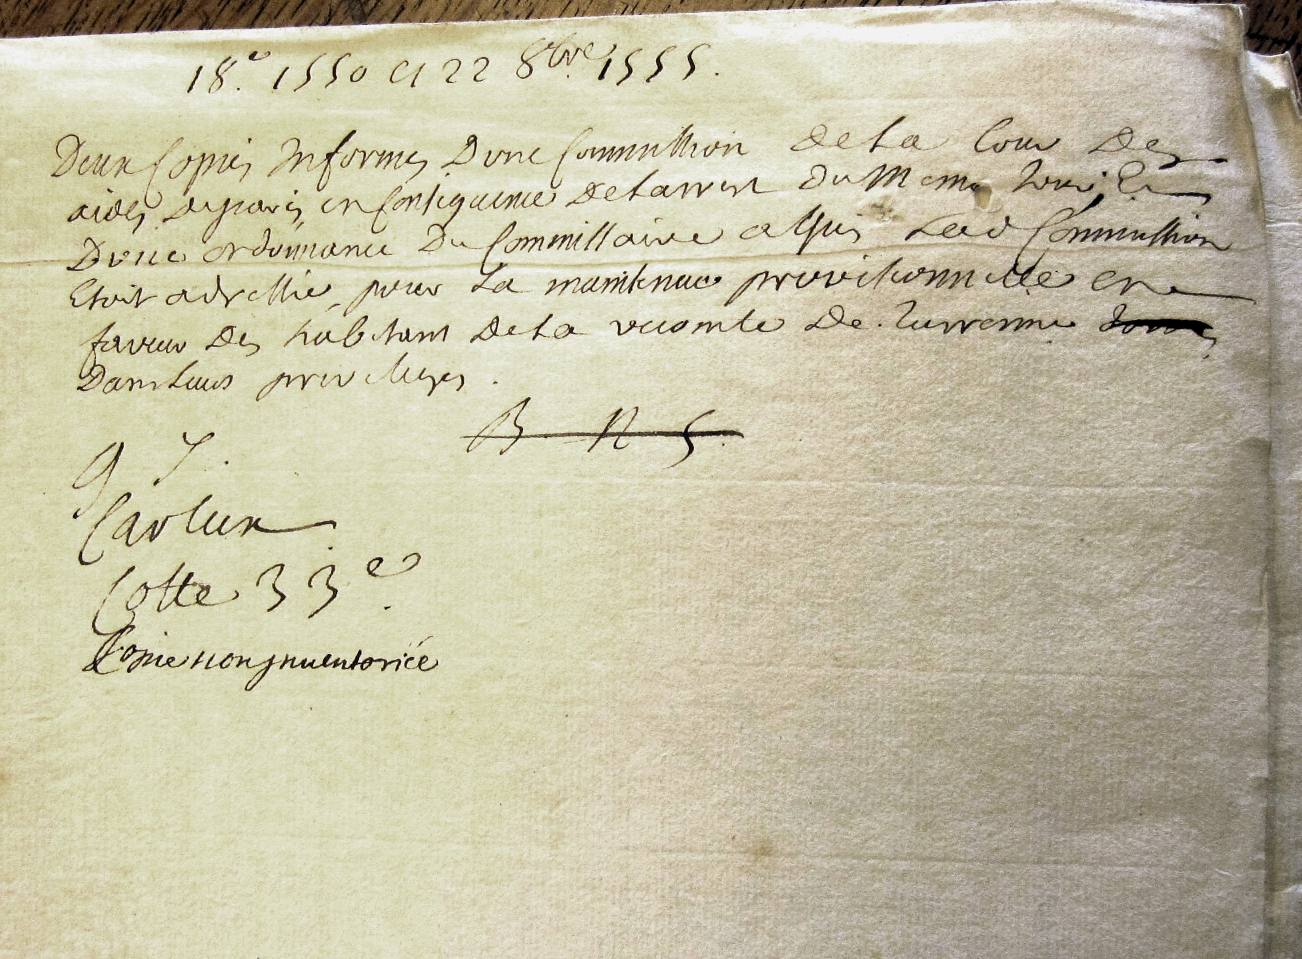 18.e 1550 et 22 8bre 1555.
Deux Copies Informes Dune Commission de la Cour Des
aides de paris en Consequence De larrest du Meme Jour, Et
Dune ordonnance Du Commissaire a qui Lad Commission
Etoit adressée, pour La maintenue provisionnelle en
faveur des habitans de la vicomté De Turrenne
Dans Leurs privileges.
B N S.
Carlux
Cotte 33e.
Copie non jnventoriée